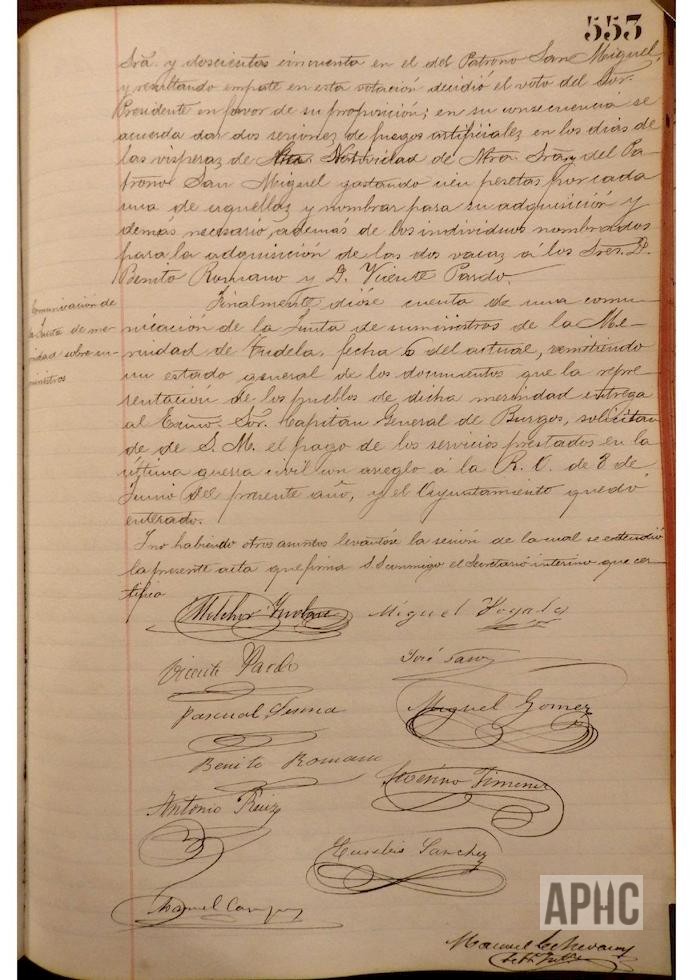 553
Srã. y doscientas cincuenta en el del Patrono San Miguel,
y resultando empate en esta votación decidió el voto del Sor.
Presidente en favor de su proposición; en su consecuencia se
acuerda dar dos sesiones de fuegos artificiales en los dias de
las visperas de Natividad de Ntra. Srã. y del Pa-
trono San Miguel gastando cien pesetas por cada
una de aquellas y nombrar para su adquisición y
demás necesario, además de los individuos nombrados
para la adquisición de las dos vacas á los Sres. D.
Benito Romano y D. Vicente Pardo.
Comunicación de
la Junta de me-
rindad sobre su-
ministros
Finalmente, dióse cuenta de una comu-
nicación de la Junta de suministros de la Me-
rindad de Tudela, fecha 6 del actual, remitiendo
un estado general de los documentos que la repre-
sentación de los pueblos de dicha merindad entrega
al Excmo. Sor. Capitan General de Burgos, solicitan-
do de S. M. el pago de los servicios prestados en la
última guerra civil con arreglo á la R. O. de 8 de
Junio del presente año, y el Ayuntamiento quedó
enterado.
Y no habiendo otros asuntos levantóse la sesión de la cual se estendió
la presente acta que firma S.S. conmigo el Secretario interino que cer-
tifico
Melchor
Miguel
Vicente Pardo
José Sanz
Pascual
Miguel Gomez
Benito Romano
Severino Jimenez
Antonio Ruiz
Eusebio Sanchez
Manuel
APHC
Manuel Echevarria